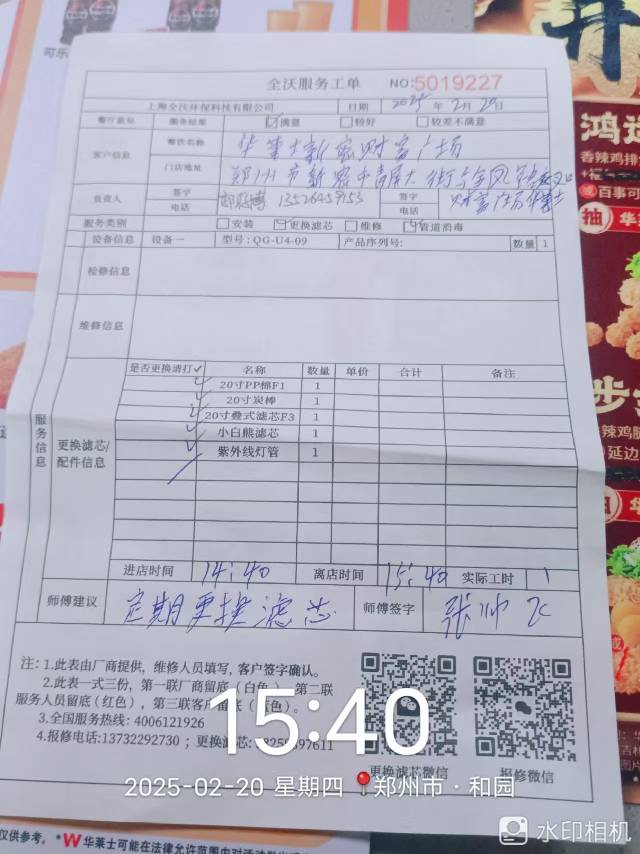 可乐
全沃服务工单 NO:5019227
上海全沃环保科技有限公司 日期 2025年2月20日
餐厅意见 服务结果 满意 较好 较差不满意
客户信息 餐饮名称 华莱士新密财富广场
门店地址 郑州市新密
负责人 签字 签字
电话 13526459153 电话
服务类别 安装 更换滤芯 维修 管道消毒
设备信息 设备一 型号:QG-U4-09 产品序列号: 数量 1
检修信息
维修信息
服务信息
更换滤芯/配件信息
是否更换请打✓ 名称 数量 单价 合计 备注
20寸PP棉F1 1
20寸炭棒 1
20寸叠式滤芯F3 1
小白熊滤芯 1
紫外线灯管 1
进店时间 14:40 离店时间 15:40 实际工时 1
师傅建议 定期更换滤芯 师傅签字 张帅
注:1.此表由厂商提供,维修人员填写,客户签字确认。
2.此表一式三份,第一联厂商留底(白色),第二联
服务人员留底(红色),第三联客户留底(黄色)。
3.全国服务热线:4006121926
4.报修电话:13732292730;更换滤芯:
更换滤芯微信 报修微信
15:40
2025-02-20 星期四 郑州市·和园
水印相机
仅供参考。*W华莱士可能在法律允许范围内对活动做出
鸿运
香辣鸡排
百事可
抽 华莱
步步
辣鸡腿
延边